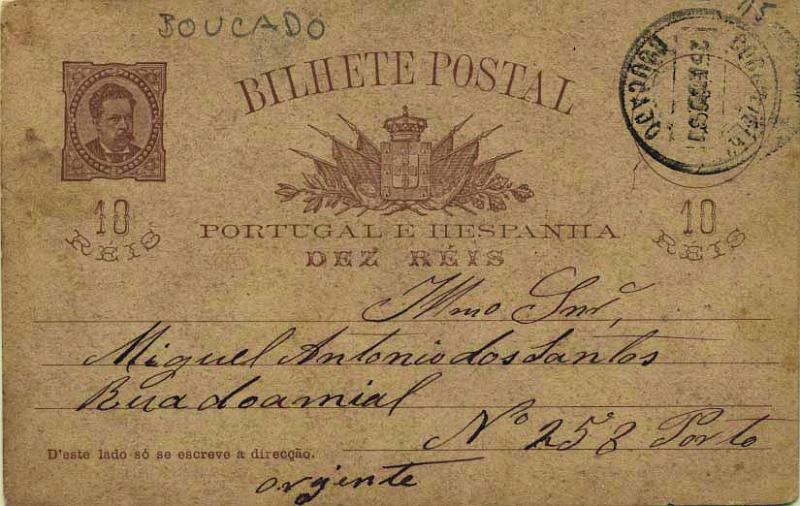 BOUCADO
BILHETE POSTAL
10
REIS
PORTUGAL E HESPANHA
DEZ RÉIS
10
REIS
Illmo Snr,
Miguel Antonio dos Santos
Rua do amial
Nº 258 Porto
D'este lado só se escreve a direcção.
orjente